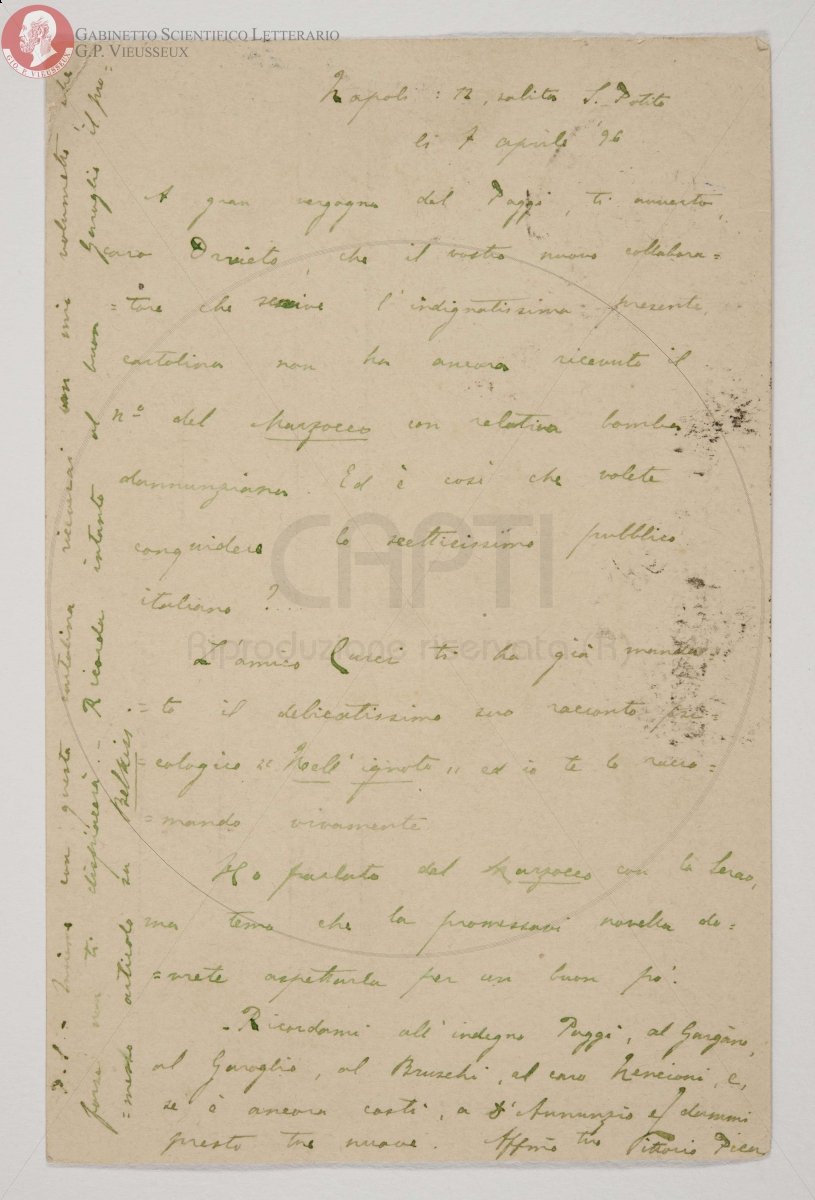 GABINETTO SCIENTIFICO LETTERARIO
G.P. VIEUSSEUX
GIO. P. VIEUSSEUX
Napoli: 12, salita S. Potito
li 7 aprile '96
A gran vergogna del Paggi, ti avverto,
caro Orvieto, che il vostro nuovo collabora=
=tore che scrive l'indignatissima presente
cartolina non ha ancora ricevuto il
nº del Marzocco con relativa bomba
dannunziana. Ed è così che volete
conquidere lo scetticissimo pubblico
italiano?...
L'amico Curci ti ha già manda=
=to il delicatissimo suo racconto psi=
=cologico "Nell'ignoto" ed io te lo racco=
=mando vivamente
Ho parlato del Marzocco con la Serao,
ma temo che la promessavi novella do=
=vrete aspettarla per un buon po'.
Ricordami all'indegno Paggi, al Gargano,
al Garoglio, al Bruschi, al caro Nencioni, e,
se è ancora costì, a D'Annunzio e dammi
presto tue nuove. Affmo tuo Vittorio Pica
P.S. - Insieme con questa cartolina riceverai un mio volumetto che
forse non ti dispiacerà. - Ricorda intanto al buon Garoglio il pro=
=messo articolo su Belkiss.
CAPTI
Riproduzione riservata (R)